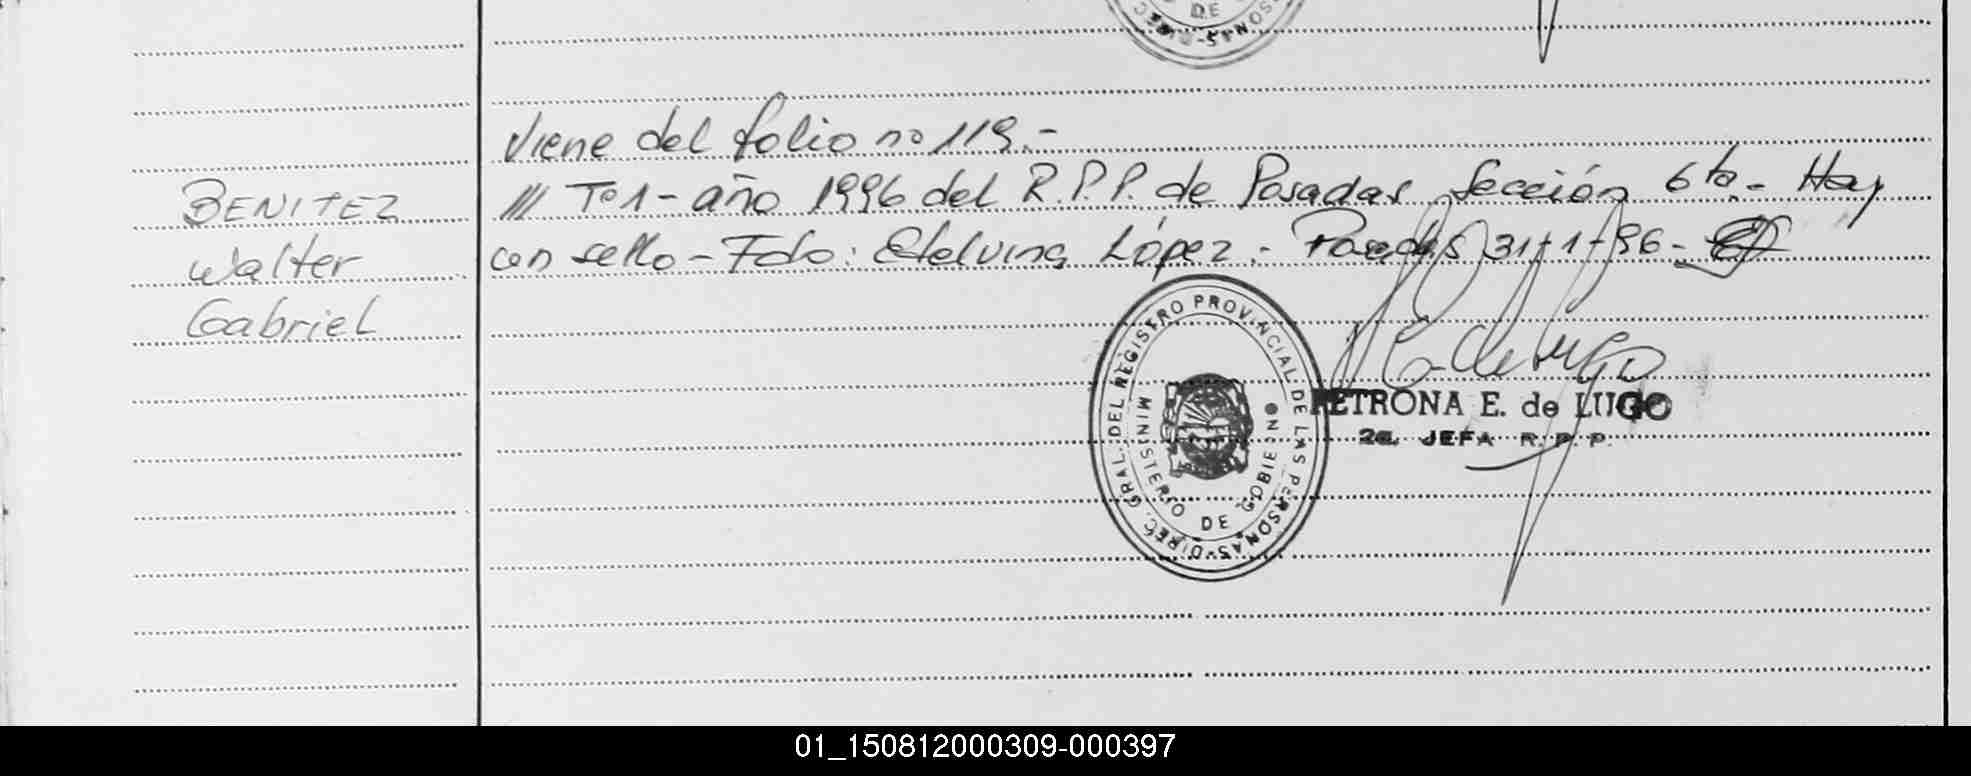 DE
PERSONAS-DIREC.
Viene del folio no 119.-
BENITEZ
/// To 1 - año 1996 del R.P.P. de Posadas Sección 6ta.- Hay
Walter
un sello - Fdo: Etelvina López.- Posadas 31-1-96-
Gabriel
DIREC. GRAL. DEL REGISTRO PROVINCIAL DE LAS PERSONAS
MINISTERIO DE GOBIERNO
PETRONA E. de LUGO
2a. JEFA R.P.P.
01_150812000309-000397